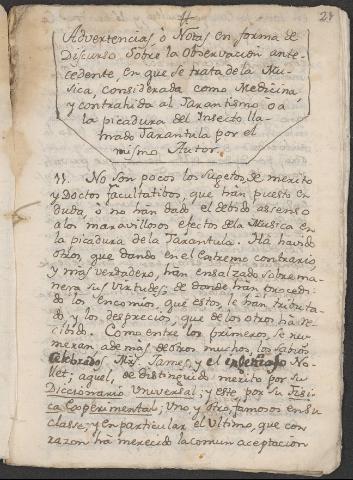 27
Advertencias, o Notas en forma de
Discurso Sobre la Observacion ante-
cedente, en que se trata de la Mu-
sica, considerada como Medicina,
y contrahida al Tarantismo o a
la picadura del Insecto lla-
mado Tarantula por el
mismo Autor.
11. No son pocos los Sugetos de merito
y Doctos facultatibos, que han puesto en
duda, o no han dado el debido ascenso
a los maravillosos efectos de la Musica en
la picadura de la Tarantula. Ha havido
otros, que dando en el extremo contrario,
y mas verdadero, han ensalzado sobre ma-
nera sus virtudes, de donde han procedi-
do los encomios, que estos le han tributa-
do y los desprecios, que de los otros ha re-
cibido. Como entre los primeros, se nu-
meran ademas de otros muchos, los sabios
celebrados Mrs. James, y el ingenioso No-
llet; aquel, de distinguido merito por su
Diccionario Universal; y este, por su Fisi-
ca Experimental; uno y otro, famosos en su
classe; y en particular el ultimo, que con
razon ha merecido la comun aceptacion